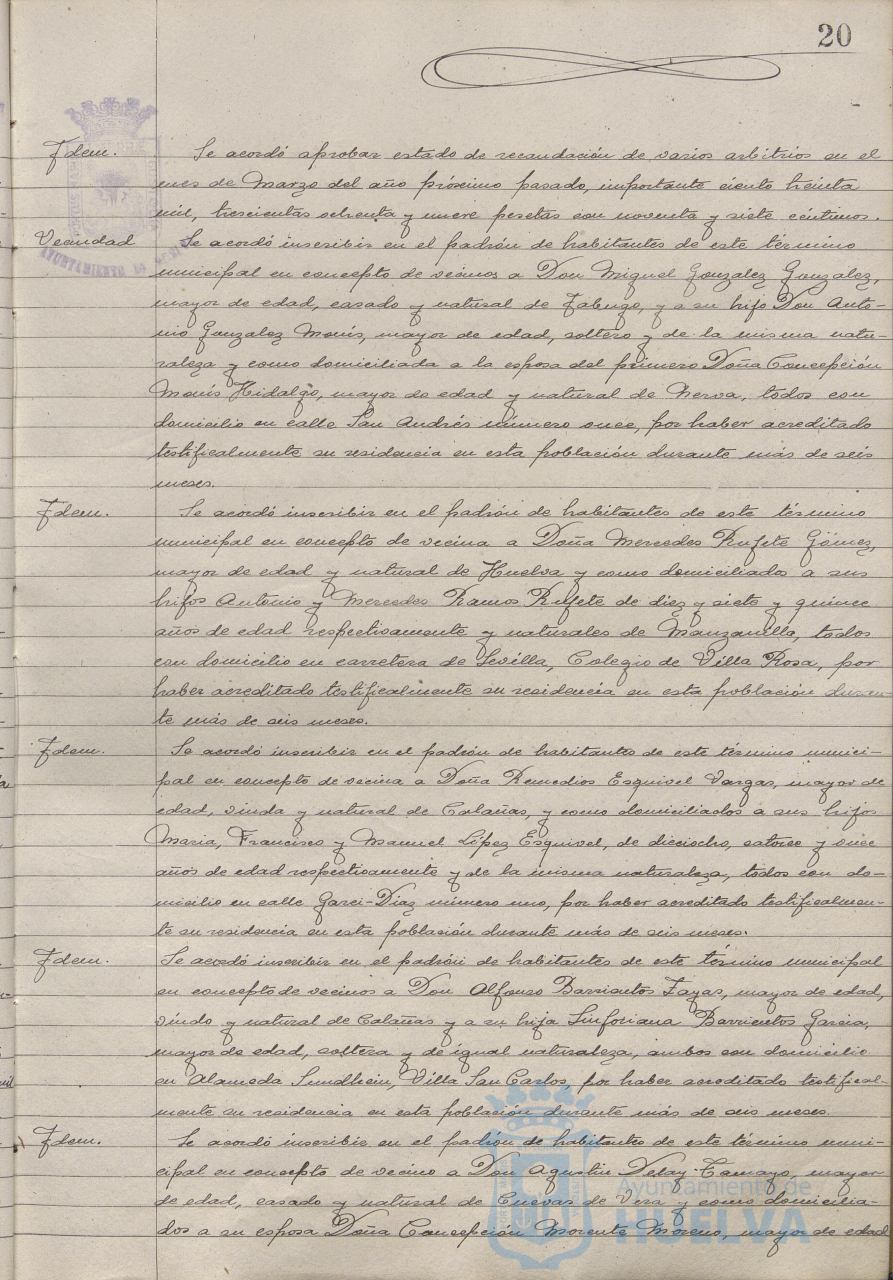 20
Idem. Se acordó aprobar estado de recaudación de varios arbitrios en el
mes de Marzo del año próximo pasado, importante ciento treinta
mil, trescientas ochenta y nueve pesetas con noventa y siete céntimos.
Vecindad Se acordó inscribir en el padrón de habitantes de este término
AYUNTAMIENTO DE
municipal en concepto de vecinos a Don Miguel Gonzalez Gonzalez,
mayor de edad, casado y natural de Jabugo, y a su hijo Don Anto-
nio Gonzalez Monís, mayor de edad, soltero y de la misma natu-
raleza y como domiciliada a la esposa del primero Doña Concepción
Monís Hidalgo, mayor de edad y natural de Nerva, todos con
domicilio en calle San Andrés número once, por haber acreditado
testificalmente su residencia en esta población durante más de seis
meses.
Idem. Se acordó inscribir en el padrón de habitantes de este término
municipal en concepto de vecina a Doña Mercedes Rufete Gómez,
mayor de edad y natural de Huelva y como domiciliados a sus
hijos Antonio y Mercedes Ramos Rufete de diez y siete y quince
años de edad respectivamente y naturales de Manzanilla, todos
con domicilio en carretera de Sevilla, Colegio de Villa Rosa, por
haber acreditado testificalmente su residencia en esta población duran-
te más de seis meses.
Idem. Se acordó inscribir en el padrón de habitantes de este término munici-
pal en concepto de vecina a Doña Remedios Esquivel Vargas, mayor de
edad, viuda y natural de Calañas, y como domiciliados a sus hijos
Maria, Francisco y Manuel López Esquivel, de dieciocho, catorce y once
años de edad respectivamente y de la misma naturaleza, todos con do-
micilio en calle Garci-Diaz número uno, por haber acreditado testificalmen-
te su residencia en esta población durante más de seis meses.
Idem. Se acordó inscribir en el padrón de habitantes de este término municipal
en concepto de vecinos a Don Alfonso Barrientos Zayas, mayor de edad,
viudo y natural de Calañas y a su hija Sinforiana Barrientos Garcia,
mayor de edad, soltera y de igual naturaleza, ambos con domicilio
en Alameda Sundhein, Villa San Carlos, por haber acreditado testifical-
mente su residencia en esta población durante más de seis meses.
Idem. Se acordó inscribir en el padrón de habitantes de este término muni-
cipal en concepto de vecino a Don Agustin Tamayo, mayor
de edad, casado y natural de Cuevas de Vera y como domicilia-
dos a su esposa Doña Concepción Morente Moreno, mayor de edad
Ayuntamiento de
HUELVA